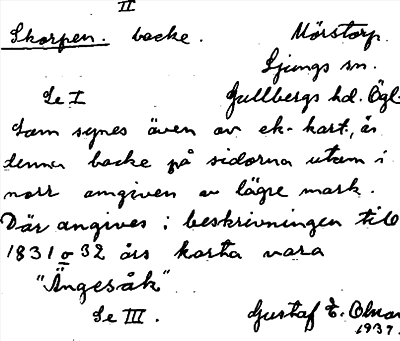 II
Skorpen. backe. Mörstorp
Ljungs sn.
Se I Gullbergs hd. Ögl.
Som synes även av ek-kart., är
denna backe på sidorna utom i
norr omgiven av lägre mark.
Där angives i beskrivningen till
1831 o 32 års karta vara
"Ängesåk"
Se III. Gustaf E.
1937.